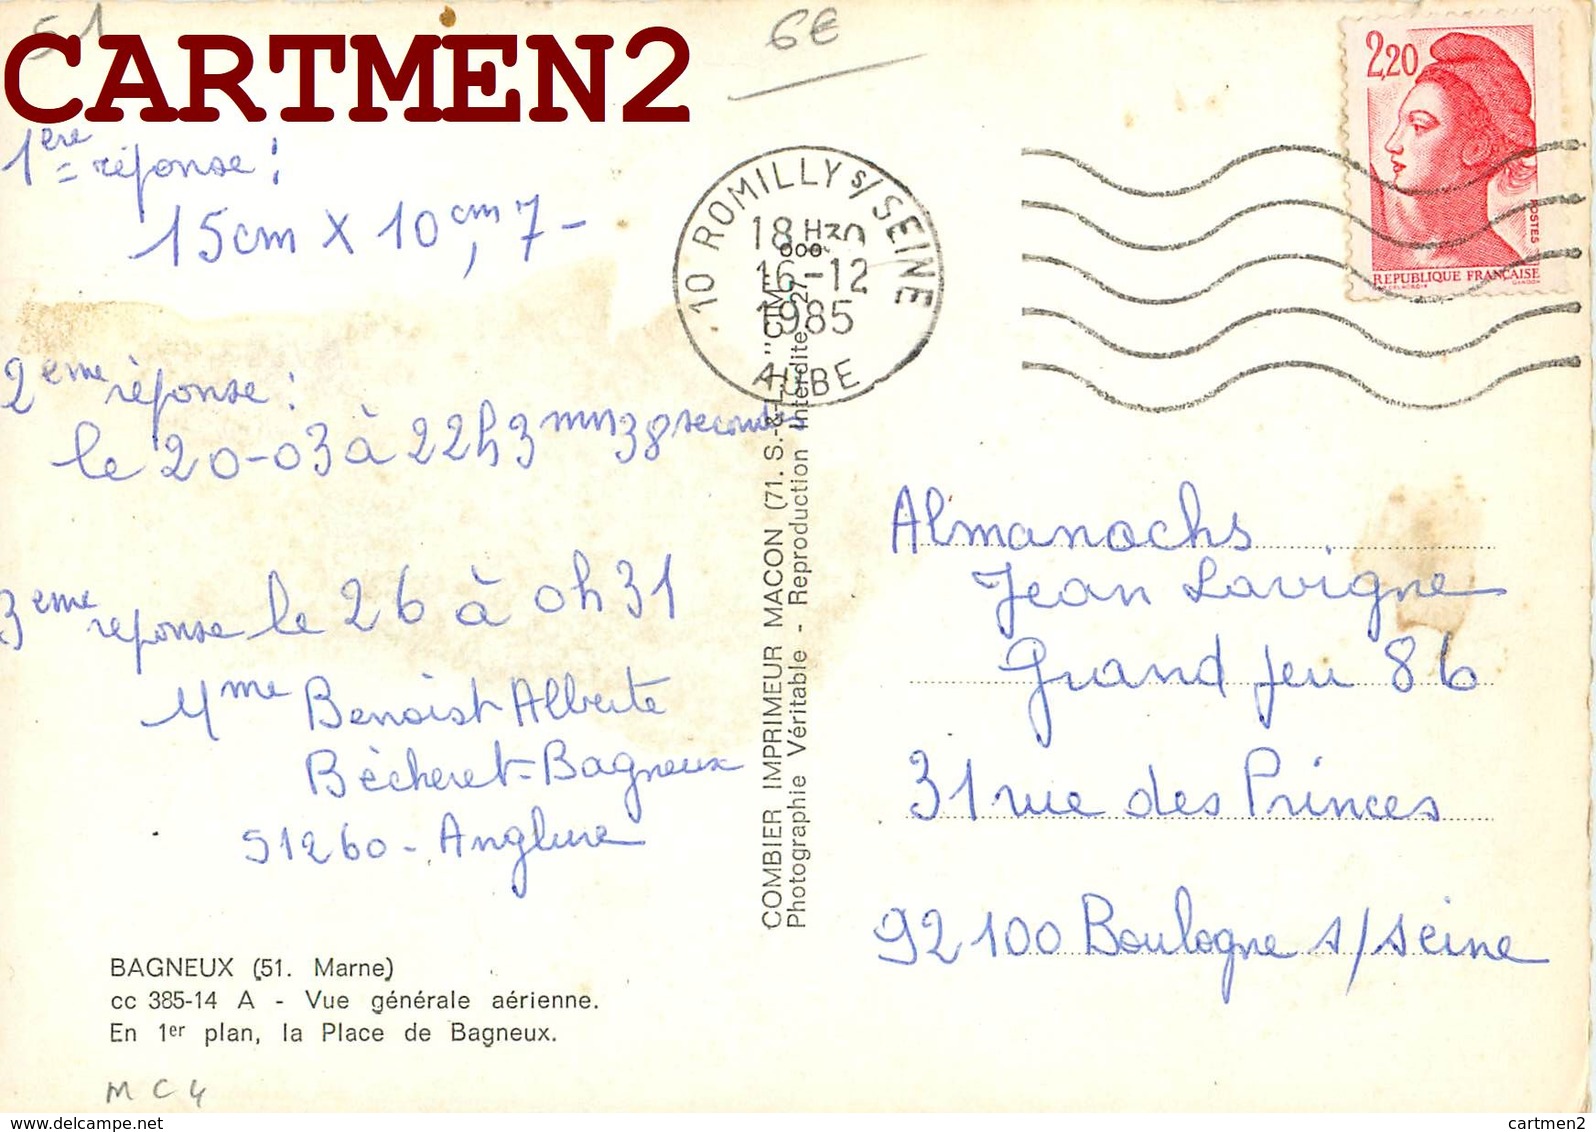 51
6€
CARTMEN2
1ère réponse :
15cm x 10cm,7 -
2eme réponse :
le 20-03 à 22h3mn38 secondes
3eme réponse le 26 à 0h31
Mme Benoist Alberte
Bècheret-Bagneux
51260 - Anglure
BAGNEUX (51. Marne)
cc 385-14 A - Vue générale aérienne.
En 1er plan, la Place de Bagneux.
M C 4
COMBIER IMPRIMEUR MACON (71. S.-&-L.) "CIM"
Photographie Véritable - Reproduction Interdite
10 ROMILLY s/ SEINE
18H30
16-12
1985
AUBE
2,20
POSTES
REPUBLIQUE FRANÇAISE
DELACROIX
GANDON
Almanachs
Jean Lavigne
Grand jeu 86
31 rue des Princes
92100 Boulogne s/seine
cartmen2